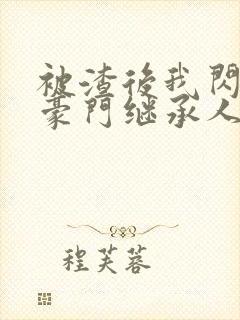 被渣後我閃
豪門继承人
程芙蓉